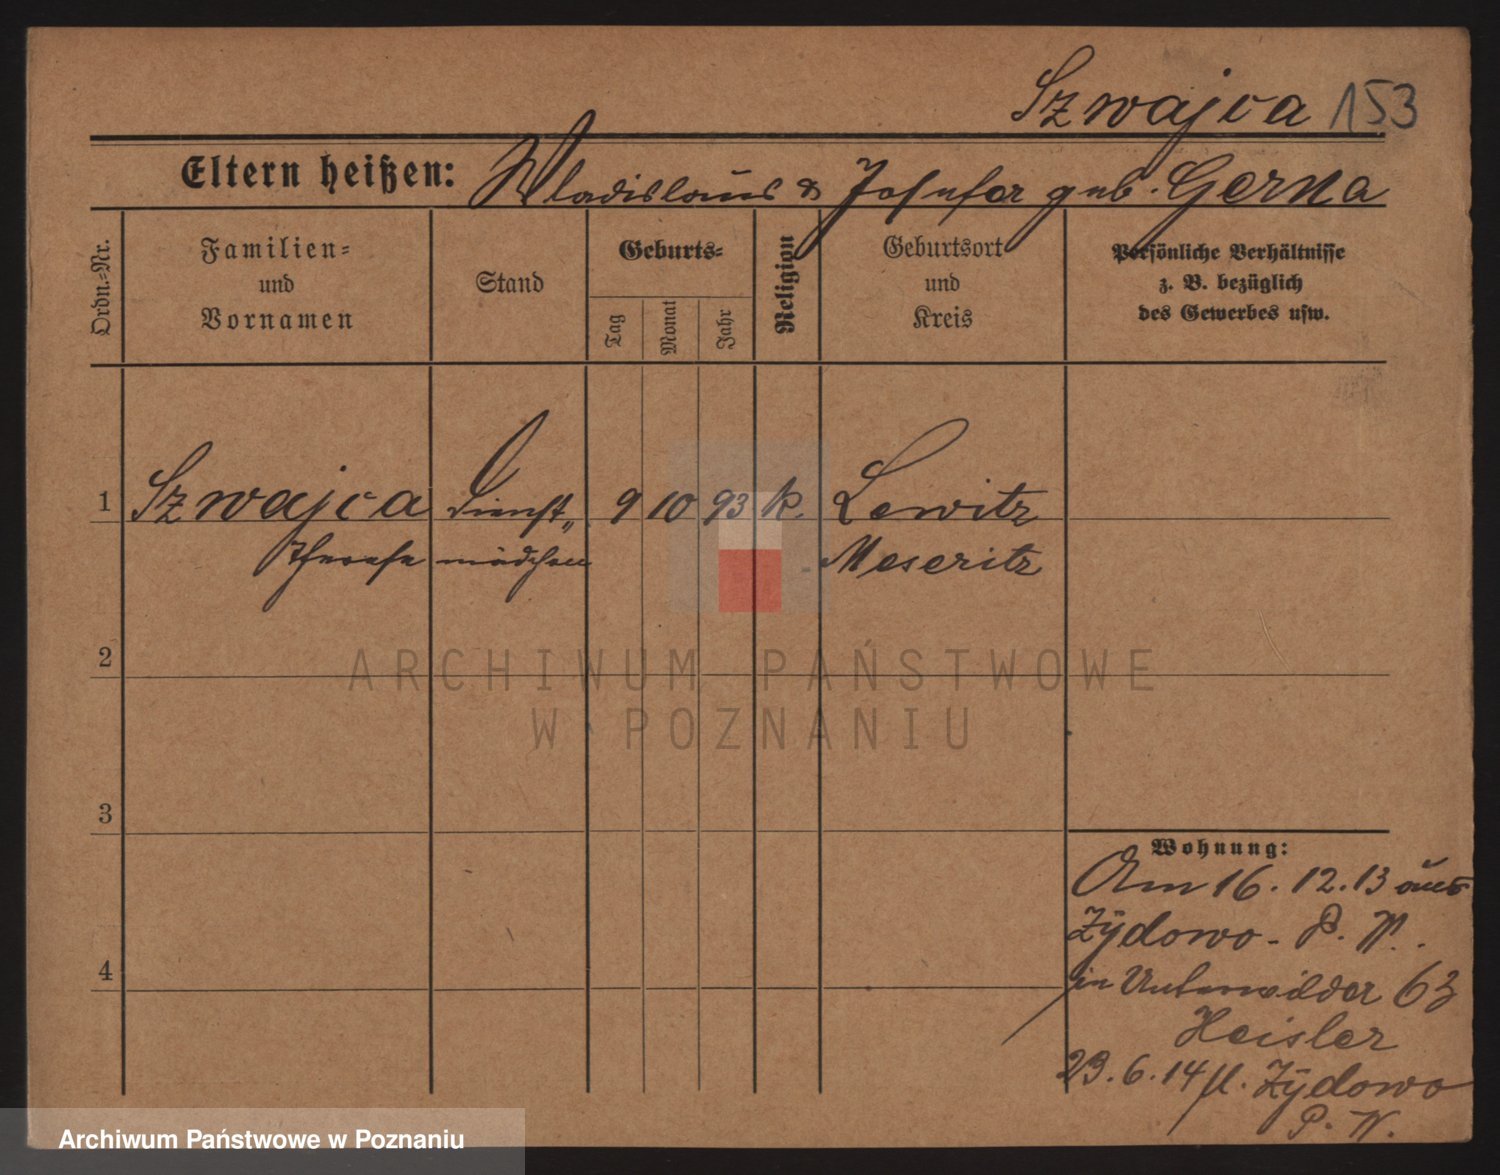 Szwajca 153
Eltern heißen: Wladislaus & Josefa geb. Gerna
Ordn.-Nr.
Familien-
und
Vornamen
Stand
Geburts-
Tag
Monat
Jahr
Religion
Geburtsort
und
Kreis
Persönliche Verhältnisse
z. B. bezüglich
des Gewerbes usw.
1 Szwajca Dienst„ 9 10 93 k. Lewitz
Therese mädchen Meseritz
2
ARCHIWUM PAŃSTWOWE
W POZNANIU
3
Wohnung:
Am 16.12.13 aus
Zydowo - P. W.
in Unterwilda 63
Heisler
23.6.14 fl. Zydowo
P. W.
4
Archiwum Państwowe w Poznaniu